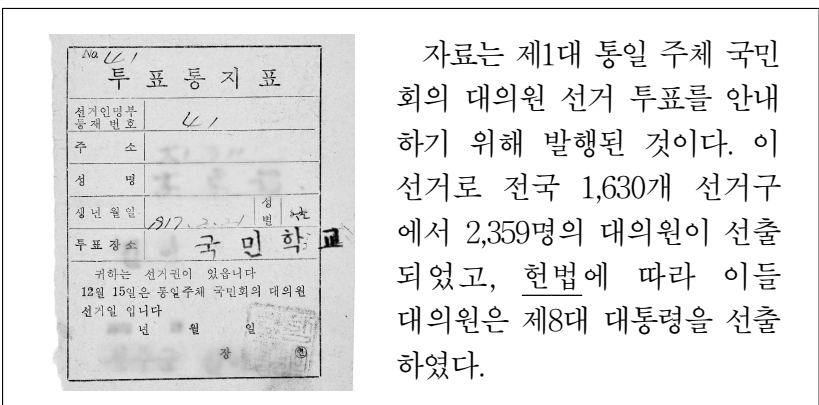 No 41
투표통지표
선거인명부
등재번호 41
주소
성명
생년월일 1917.2.21 성별
투표장소 국민학교
귀하는 선거권이 있읍니다
12월 15일은 통일주체 국민회의 대의원
선거일 입니다
년 월 일
장
자료는 제1대 통일 주체 국민
회의 대의원 선거 투표를 안내
하기 위해 발행된 것이다. 이
선거로 전국 1,630개 선거구
에서 2,359명의 대의원이 선출
되었고, 헌법에 따라 이들
대의원은 제8대 대통령을 선출
하였다.